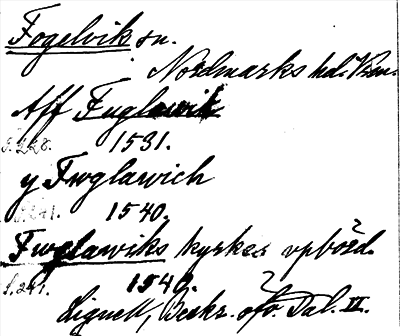 Fogelvik sn.
Nordmarks hd. Värml.
Aff Fuglawik
s. 228. 1531.
y Fwglawich
s. 241. 1540.
Fwglawiks kyrkes vpbözd.
s. 241. 1540.
Lignell, Beskr. öfv. Dal. II.